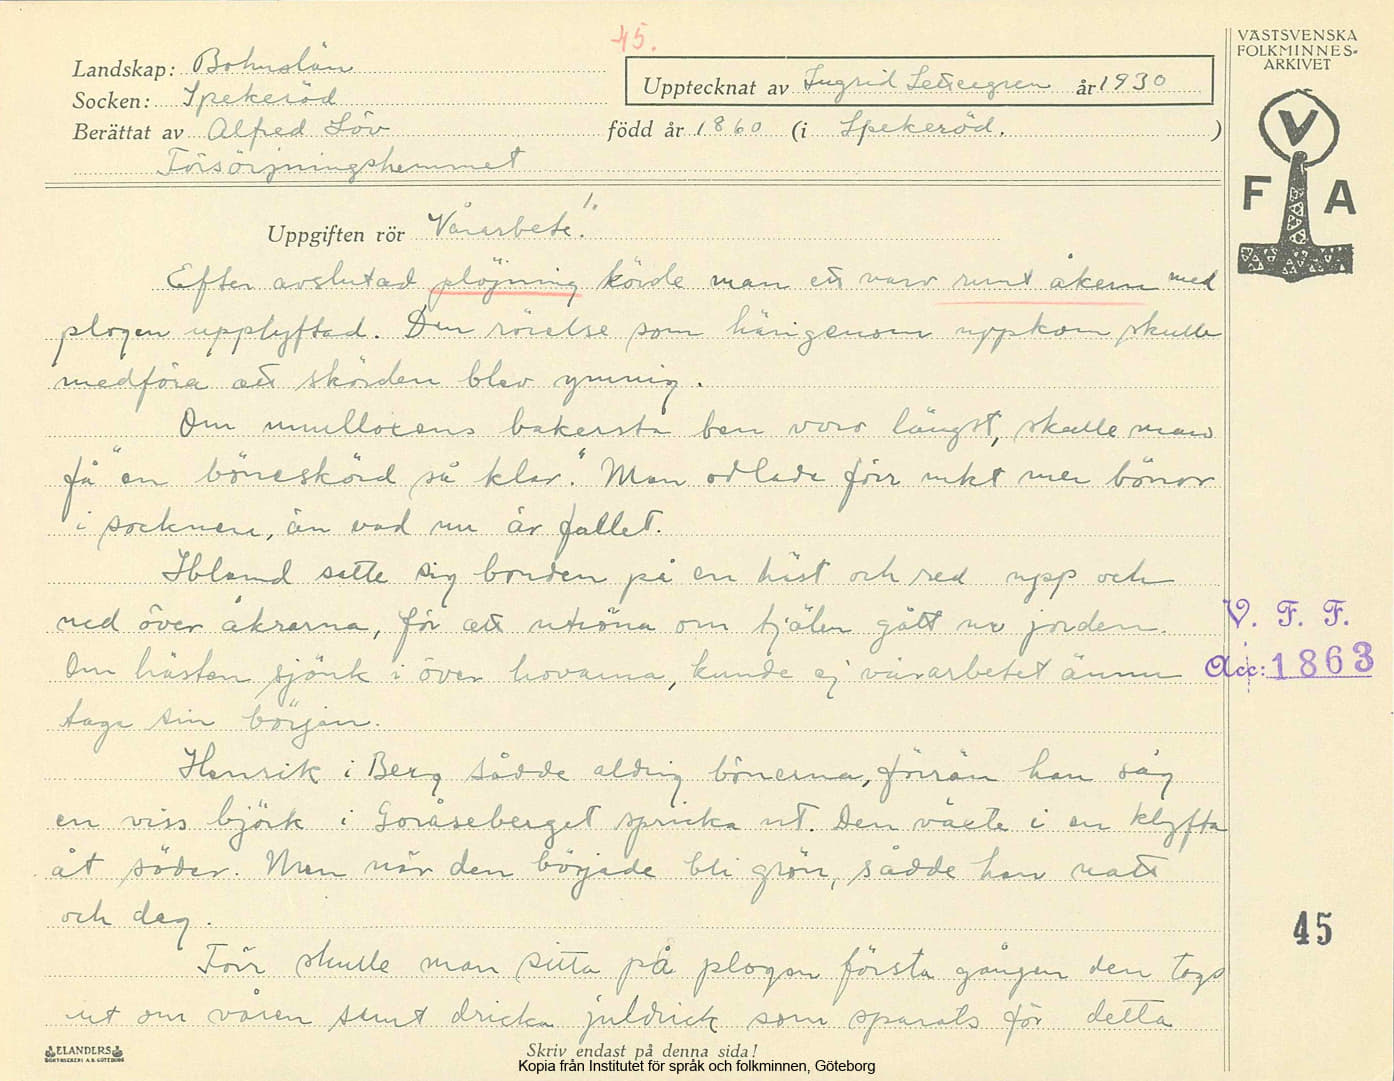 45.
VÄSTSVENSKA
FOLKMINNES-
ARKIVET
Landskap: Bohuslän
Upptecknat av Ingrid Settergren år 1930
Socken: Spekeröd
Berättat av Alfred Löv född år 1860 (i Spekeröd. )
Försörjningshemmet
V
F A
Uppgiften rör "Vårarbete". 1.
Efter avslutad plöjning körde man ett varv runt åkern med
plogen upplyftad. Den rörelse som härigenom uppkom skulle
medföra att skörden blev ymnig.
Om mulloxens bakersta ben voro längst, skulle man
få "en böneskörd så klar." Man odlade förr mkt mer bönor
i socknen, än vad nu är fallet.
Ibland satte sig bonden på en häst och red upp och
ned över åkrarna, för att utröna om tjälen gått ur jorden.
Om hästen sjönk i över hovarna, kunde ej vårarbetet ännu
taga sin början.
V. F. F.
Acc: 1863
Henrik i Berg sådde aldrig bönerna, förrän han såg
en viss björk i Goråseberget spricka ut. Den växte i en klyfta
åt söder. Men när den började bli grön, sådde han natt
och dag.
45
Förr skulle man sitta på plogen första gången den togs
ut om våren samt dricka juldrick som sparats för detta
ELANDERS
BOKTRYCKERI A.B. GÖTEBORG
Skriv endast på denna sida!
Kopia från Institutet för språk och folkminnen, Göteborg